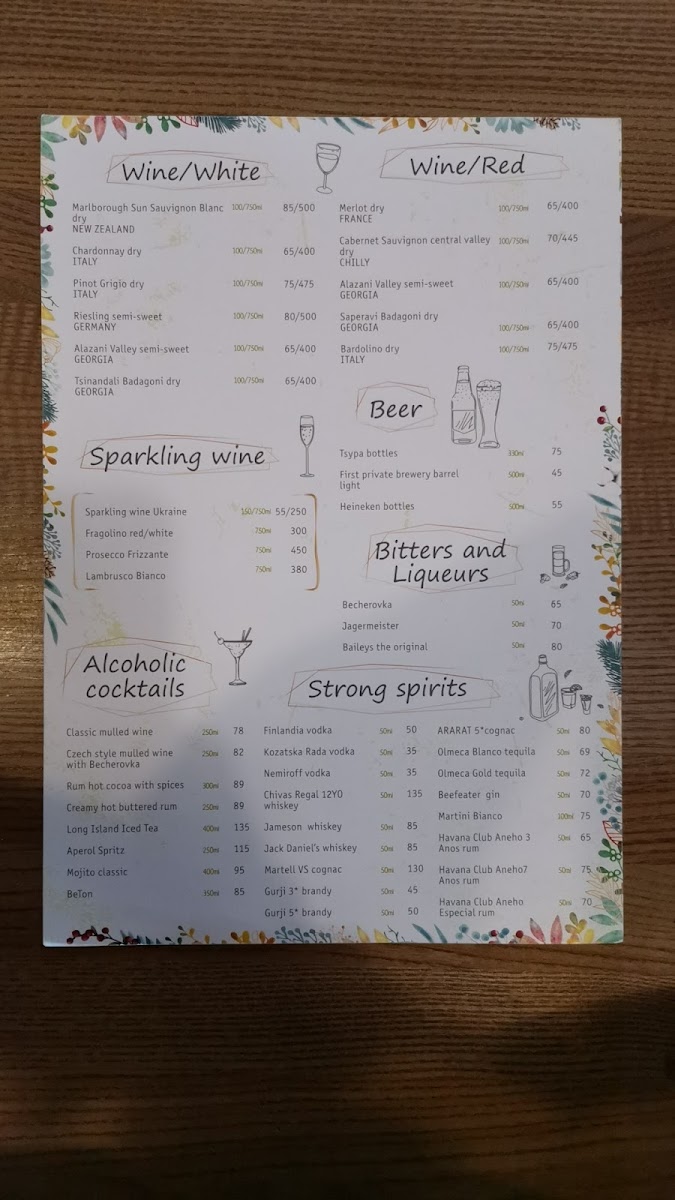 Wine/White
Marlborough Sun Sauvignon Blanc 100/750ml 85/500
dry
NEW ZEALAND
Chardonnay dry 100/750ml 65/400
ITALY
Pinot Grigio dry 100/750ml 75/475
ITALY
Riesling semi-sweet 100/750ml 80/500
GERMANY
Alazani Valley semi-sweet 100/750ml 65/400
GEORGIA
Tsinandali Badagoni dry 100/750ml 65/400
GEORGIA
Wine/Red
Merlot dry 100/750ml 65/400
FRANCE
Cabernet Sauvignon central valley 100/750ml 70/445
dry
CHILLY
Alazani Valley semi-sweet 100/750ml 65/400
GEORGIA
Saperavi Badagoni dry
GEORGIA 100/750ml 65/400
Bardolino dry 100/750ml 75/475
ITALY
Sparkling wine
Sparkling wine Ukraine 150/750ml 55/250
Fragolino red/white 750ml 300
Prosecco Frizzante 750ml 450
Lambrusco Bianco 750ml 380
Beer
Tsypa bottles 330ml 75
First private brewery barrel 500ml 45
light
Heineken bottles 500ml 55
Bitters and
Liqueurs
Becherovka 50ml 65
Jagermeister 50ml 70
Baileys the original 50ml 80
Alcoholic
cocktails
Classic mulled wine 250ml 78
Czech style mulled wine 250ml 82
with Becherovka
Rum hot cocoa with spices 300ml 89
Creamy hot buttered rum 250ml 89
Long Island Iced Tea 400ml 135
Aperol Spritz 250ml 115
Mojito classic 400ml 95
BeTon 350ml 85
Strong spirits
Finlandia vodka 50ml 50
Kozatska Rada vodka 50ml 35
Nemiroff vodka 50ml 35
Chivas Regal 12YO 50ml 135
whiskey
Jameson whiskey 50ml 85
Jack Daniel's whiskey 50ml 85
Martell VS cognac 50ml 130
Gurji 3* brandy 50ml 45
Gurji 5* brandy 50ml 50
ARARAT 5*cognac 50ml 80
Olmeca Blanco tequila 50ml 69
Olmeca Gold tequila 50ml 72
Beefeater gin 50ml 70
Martini Bianco 100ml 75
Havana Club Aneho 3 50ml 65
Anos rum
Havana Club Aneho7 50ml 75
Anos rum
Havana Club Aneho 50ml 70
Especial rum